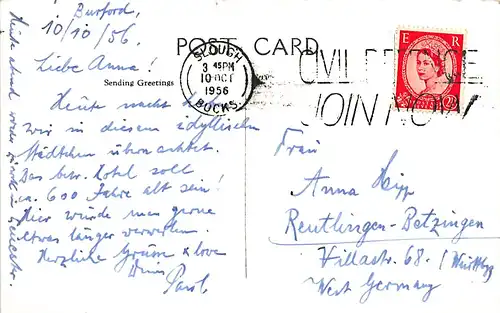 Burford,
10/10/56
Liebe Anna!
Heute nacht
wir in diesem idyllischen
Städtchen übernachtet.
Das betr. Hotel soll
ca. 600 Jahre alt sein!
Hier würde man gerne
etwas länger verweilen.
Herzliche Grüsse & love
Paul.
Heute abend wieder zurück in
POST CARD
Sending Greetings
SLOUGH
3 45PM
10 OCT
1956
BUCKS
CIVIL DEFENCE
JOIN NOW
E R
Frau
Anna Hipp
Reutlingen-Betzingen
Villastr. 68. / Württbg
West Germany